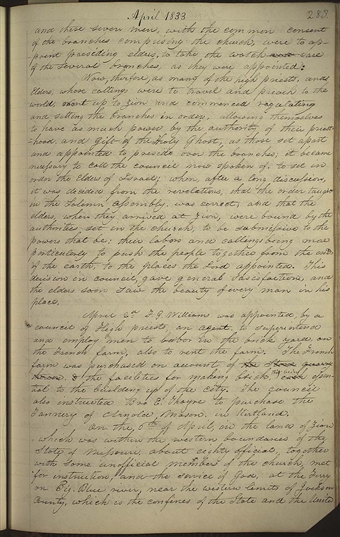 April 1833
283
and these seven men, with the common consent
of the branches comprising the church, were to ap-
point presiding elders, to take the watch care
of the several branches, as they were appointed;
Now, therefore, as many of the high priests, and
elders, whose callings were to travel and preach to the
world, went up to Zion and commenced regulating
and setting the branches in order, allowing themselves
to have as much power, by the authority of their priest-
hood and gift of the Holy Ghost, as those set apart
and appointed to preside over the branches, it became
necessary to call the council now spoken of, to set in
order the Elders of Israel; when, after a long discussion,
it was decided from the revelations, that the order taught
in the Solemn Assembly, was correct; and that the
elders, when they arrived at Zion, were bound by the
authorities, set in the church, to be submissive to the
powers that be: their labors and callings being more
particularly to push the people together from the ends
of the earth, to the places the Lord appointed. This
decision in council, gave general satisfaction, and
the elders soon saw the beauty of every man in his
place.
April 2nd F. G. Williams was appointed, by a
council of High priests, an agent to superintend
and employ men to labor in the brick yard, on
the French farm; also to rent the farm. The French
farm was purchased on account of
the facilities for making brick essen-
tial to the building up of the City. The council
also instructed Bro E. Thayre to purchase the
Tannery of Arnold Mason in Kirtland.
On the, 6th of April, in the land of Zion
which was within the western boundaries of the
State of Missouri, about eighty official, together
with some unofficial members of the church, met
for instruction, and the service of God, at the Ferry
on Big Blue river, near the western limits of Jackson
County, which is the confines of the State and the United